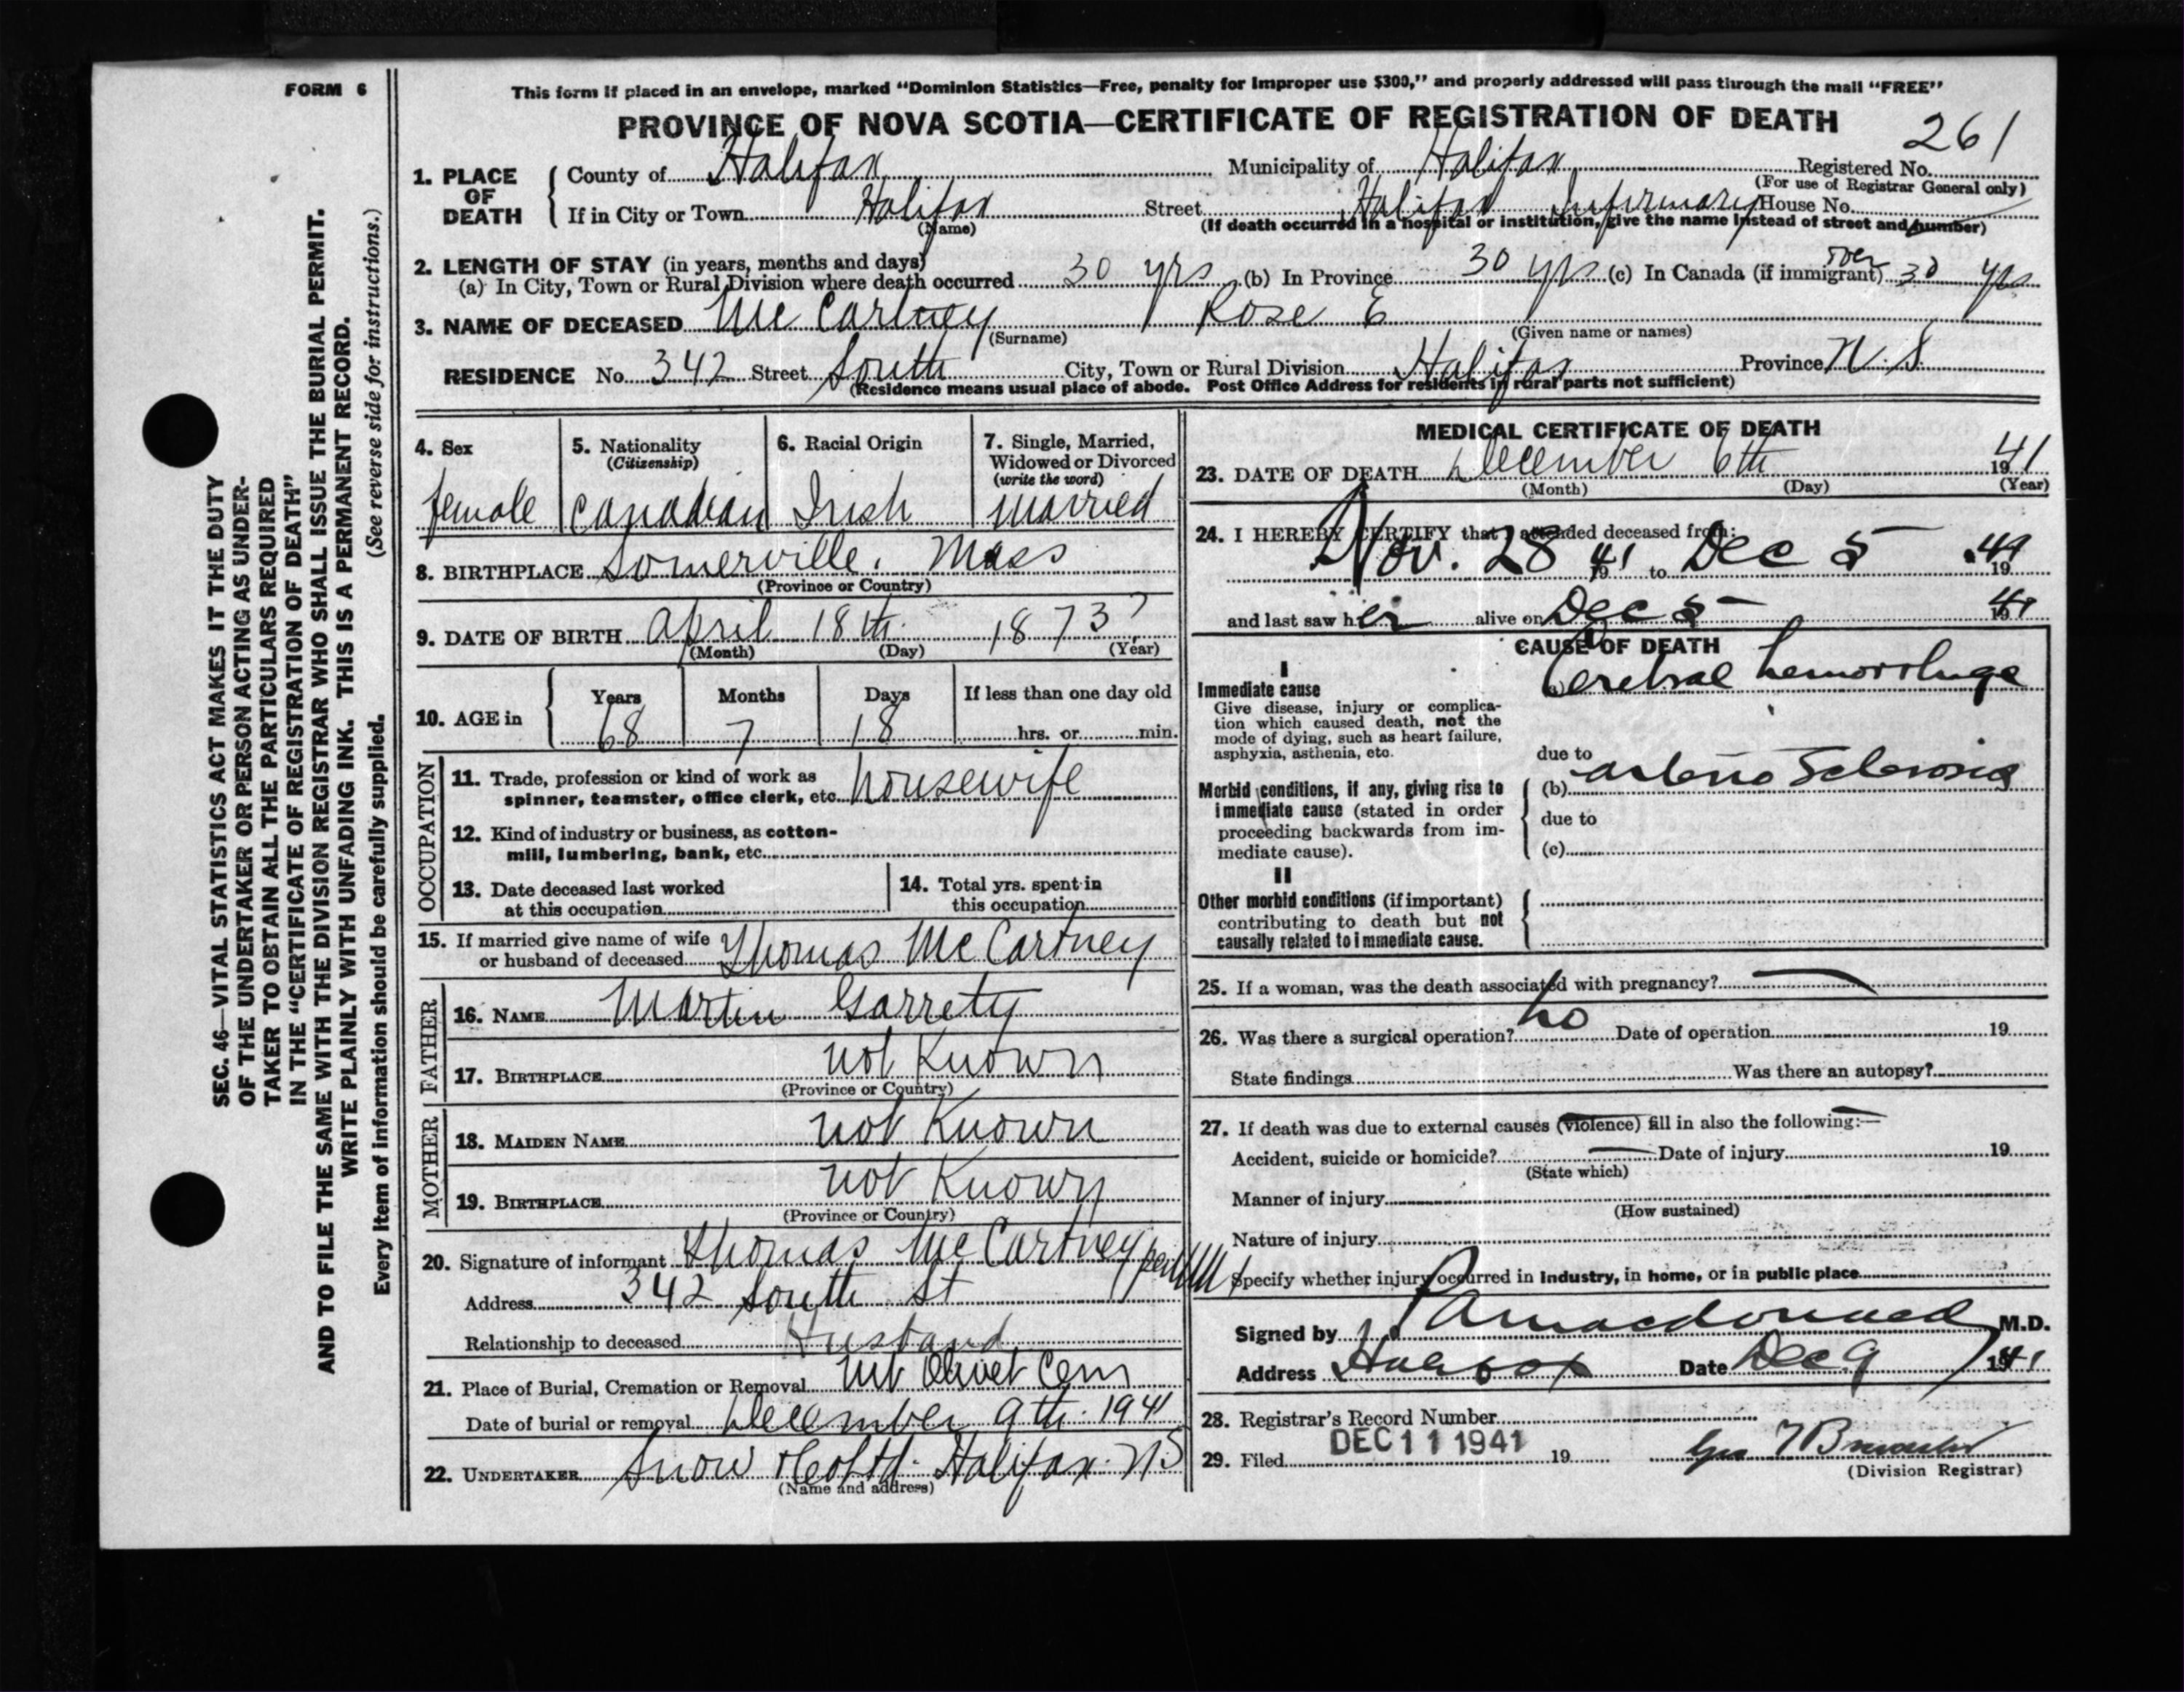 FORM 6
This form if placed in an envelope, marked "Dominion Statistics—Free, penalty for improper use $300," and properly addressed will pass through the mail "FREE"
PROVINCE OF NOVA SCOTIA—CERTIFICATE OF REGISTRATION OF DEATH
261
1. PLACE OF DEATH
County of Halifax Municipality of Halifax Registered No.
(For use of Registrar General only)
If in City or Town Halifax Street Halifax Infirmary House No.
(Name) (If death occurred in a hospital or institution, give the name instead of street and number)
2. LENGTH OF STAY (in years, months and days)
(a) In City, Town or Rural Division where death occurred 30 yrs (b) In Province 30 yrs (c) In Canada (if immigrant) over 30 yrs
3. NAME OF DECEASED McCartney Rose E
(Surname) (Given name or names)
RESIDENCE No. 342 Street South City, Town or Rural Division Halifax Province N.S.
(Residence means usual place of abode. Post Office Address for residents in rural parts not sufficient)
4. Sex
female
5. Nationality
(Citizenship)
Canadian
6. Racial Origin
Irish
7. Single, Married, Widowed or Divorced
(write the word)
married
8. BIRTHPLACE Somerville, Mass
(Province or Country)
9. DATE OF BIRTH April 18th 1873?
(Month) (Day) (Year)
10. AGE in
Years Months Days If less than one day old
68 7 18 hrs. or min.
OCCUPATION
11. Trade, profession or kind of work as
spinner, teamster, office clerk, etc. housewife
12. Kind of industry or business, as cotton-
mill, lumbering, bank, etc.
13. Date deceased last worked
at this occupation
14. Total yrs. spent in
this occupation
15. If married give name of wife
or husband of deceased Thomas McCartney
FATHER
16. NAME Martin Garrety
17. BIRTHPLACE not known
(Province or Country)
MOTHER
18. MAIDEN NAME not known
19. BIRTHPLACE not known
(Province or Country)
20. Signature of informant Thomas McCartney per
Address 342 South St
Relationship to deceased Husband
21. Place of Burial, Cremation or Removal Mt Olivet Cem
Date of burial or removal December 9th 1941
22. UNDERTAKER Snow & Co Ltd. Halifax. NS
(Name and address)
MEDICAL CERTIFICATE OF DEATH
23. DATE OF DEATH December 6th 1941
(Month) (Day) (Year)
24. I HEREBY CERTIFY that I attended deceased from:
Nov. 28 1941 to Dec 5 19
and last saw her alive on Dec 5 1941
CAUSE OF DEATH
I
Immediate cause
Give disease, injury or complica-
tion which caused death, not the
mode of dying, such as heart failure,
asphyxia, asthenia, etc.
(a) Cerebral hemorrhage
due to
Morbid conditions, if any, giving rise to
immediate cause (stated in order
proceeding backwards from im-
mediate cause).
(b) arterio Sclerosis
due to
(c)
II
Other morbid conditions (if important)
contributing to death but not
causally related to immediate cause.
25. If a woman, was the death associated with pregnancy? —
26. Was there a surgical operation? no Date of operation 19
State findings Was there an autopsy?
27. If death was due to external causes (violence) fill in also the following:—
Accident, suicide or homicide? — Date of injury 19
(State which)
Manner of injury
(How sustained)
Nature of injury
Specify whether injury occurred in industry, in home, or in public place
Signed by Macdonald M.D.
Address Halifax Date Dec 9 1941
28. Registrar's Record Number
29. Filed DEC 11 1941 19
(Division Registrar)
SEC. 46—VITAL STATISTICS ACT MAKES IT THE DUTY
OF THE UNDERTAKER OR PERSON ACTING AS UNDER-
TAKER TO OBTAIN ALL THE PARTICULARS REQUIRED
IN THE "CERTIFICATE OF REGISTRATION OF DEATH"
AND TO FILE THE SAME WITH THE DIVISION REGISTRAR WHO SHALL ISSUE THE BURIAL PERMIT.
WRITE PLAINLY WITH UNFADING INK. THIS IS A PERMANENT RECORD.
(See reverse side for instructions.)
Every item of information should be carefully supplied.